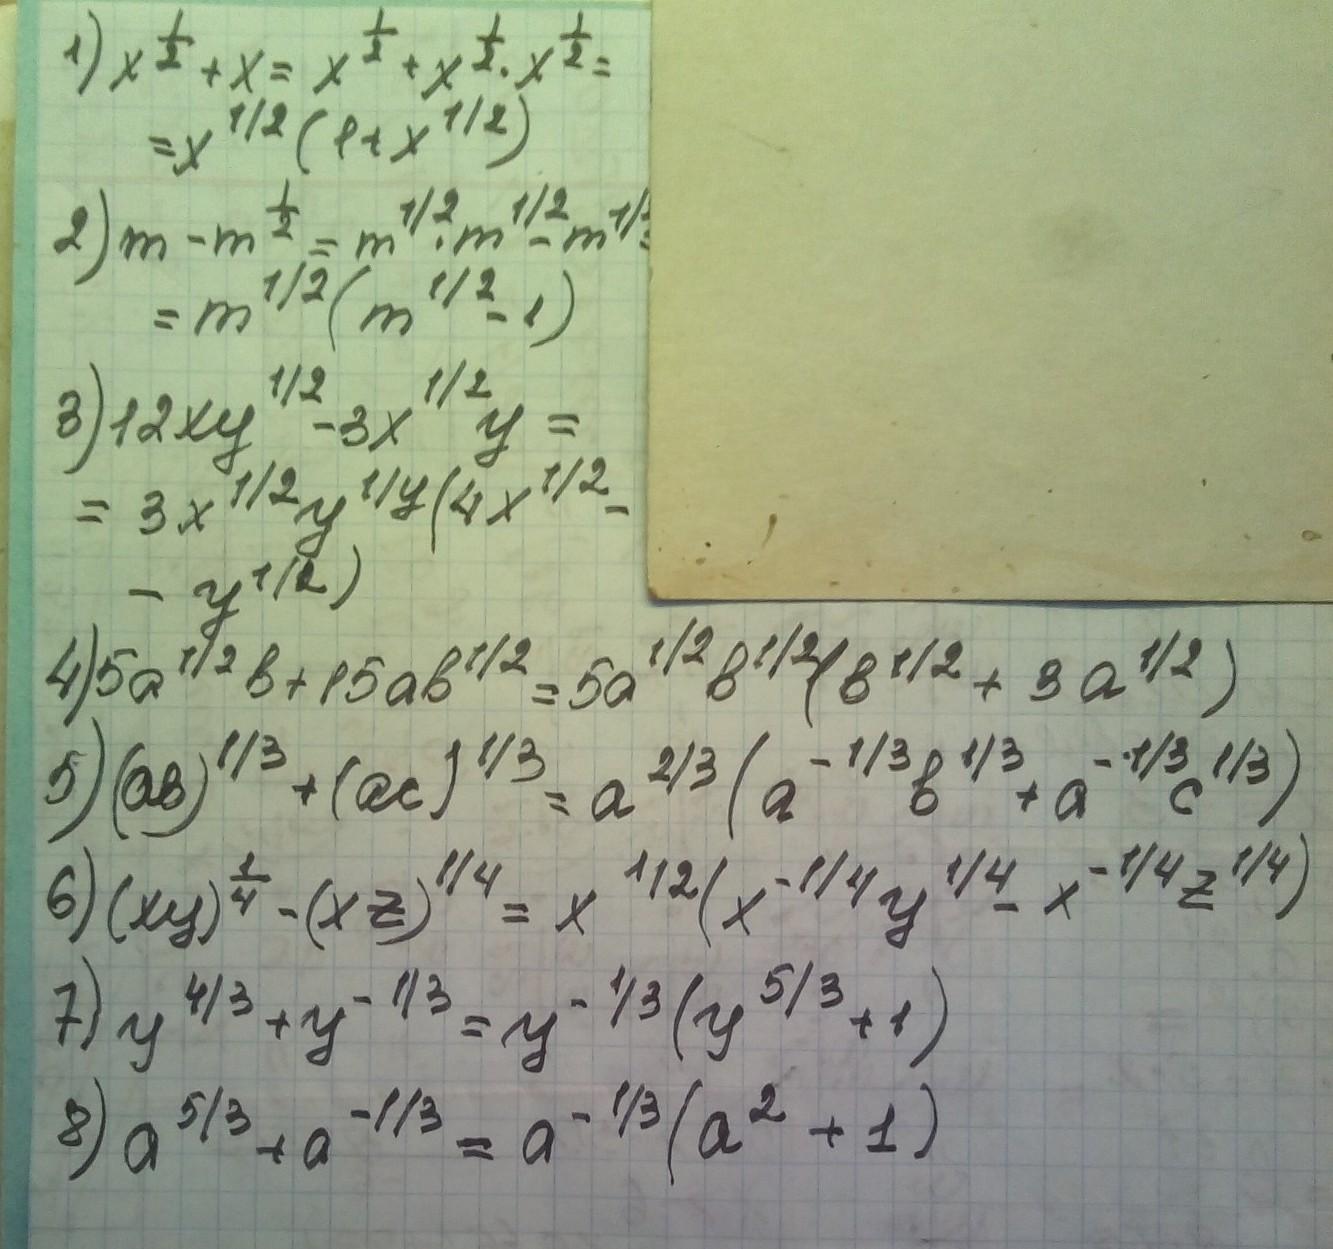 1) x^1/2 + x = x^1/2 + x^1/2 · x^1/2 =
= x^1/2 (1 + x^1/2)
2) m - m^1/2 = m^1/2 · m^1/2 - m^1/
= m^1/2 (m^1/2 - 1)
3) 12xy^1/2 - 3x^1/2 y =
= 3x^1/2 y^1/y (4x^1/2 -
- y^1/2)
4) 5a^1/2 в + 15aв^1/2 = 5a^1/2 в^1/2 (в^1/2 + 3a^1/2)
5) (aв)^1/3 + (ac)^1/3 = a^2/3 (a^-1/3 в^1/3 + a^-1/3 c^1/3)
6) (xy)^1/4 - (xz)^1/4 = x^1/2 (x^-1/4 y^1/4 - x^-1/4 z^1/4)
7) y^4/3 + y^-1/3 = y^-1/3 (y^5/3 + 1)
8) a^5/3 + a^-1/3 = a^-1/3 (a^2 + 1)